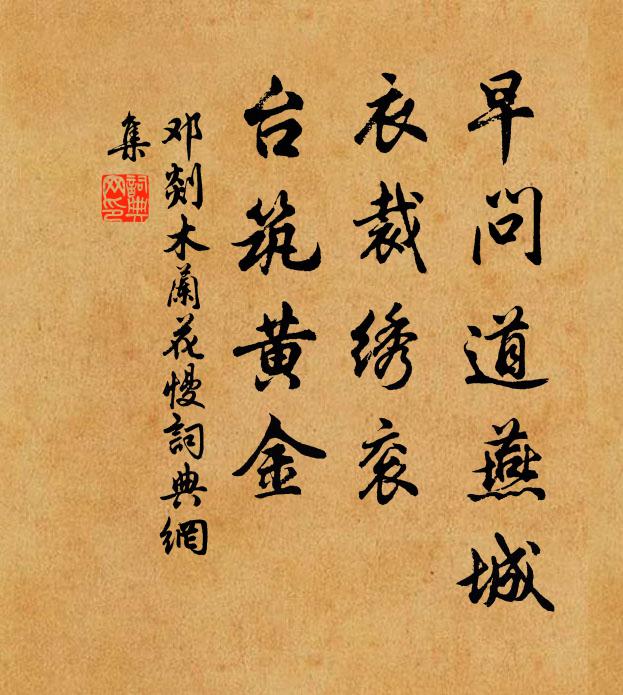 早问道燕城
衣裁绣衮
台筑黄金
邓剡木蘭花慢詞典網
集
詞典
网印